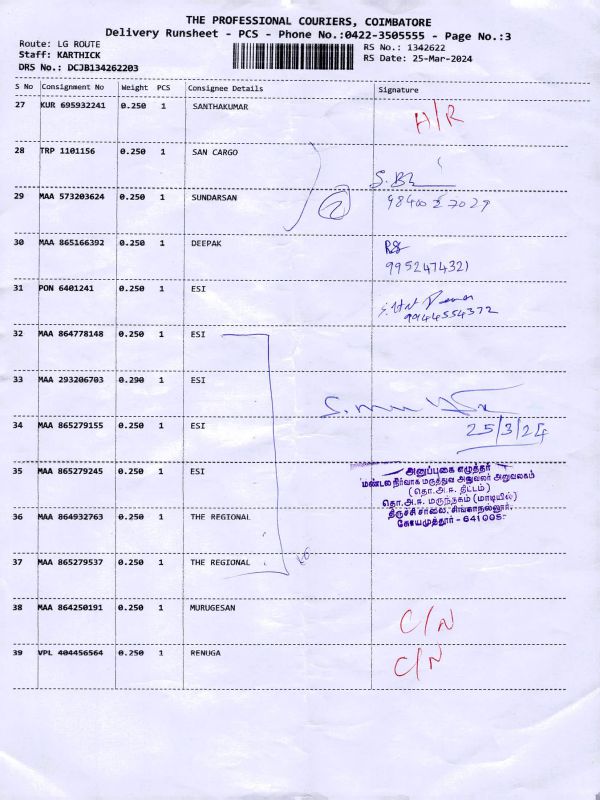 THE PROFESSIONAL COURIERS, COIMBATORE
Delivery Runsheet - PCS - Phone No.:0422-3505555 - Page No.:3
Route: LG ROUTE
Staff: KARTHICK
DRS No.: DCJB134262203
RS No.: 1342622
RS Date: 25-Mar-2024
S No Consignment No Weight PCS Consignee Details Signature
27 KUR 695932241 0.250 1 SANTHAKUMAR H/R
28 TRP 1101156 0.250 1 SAN CARGO
29 MAA 573203624 0.250 1 SUNDARSAN 2 9840027029
30 MAA 865166392 0.250 1 DEEPAK
9952474321
31 PON 6401241 0.250 1 ESI
9944554372
32 MAA 864778148 0.250 1 ESI
33 MAA 293206703 0.290 1 ESI
34 MAA 865279155 0.250 1 ESI 25/3/24
35 MAA 865279245 0.250 1 ESI
அனுப்புகை எழுத்தர்
மண்டல நிர்வாக மருத்துவ அலுவலர் அலுவலகம்
(தொ.அ.ஈ. திட்டம்)
தொ.அ.ஈ. மருந்தகம் (மாடியில்)
திருச்சி சாலை, சிங்காநல்லூர்,
கோயமுத்தூர் - 641005.
36 MAA 864932763 0.250 1 THE REGIONAL
37 MAA 865279537 0.250 1 THE REGIONAL
38 MAA 864250191 0.250 1 MURUGESAN C/N
39 VPL 404456564 0.250 1 RENUGA C/N